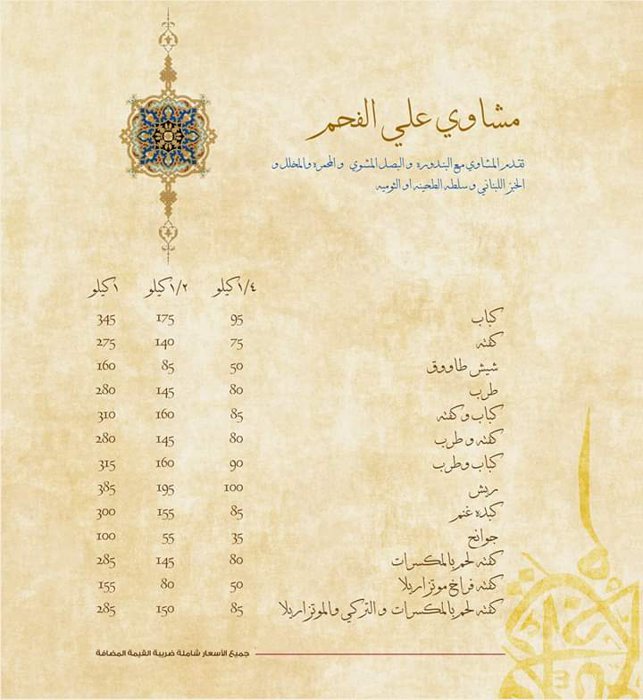 مشاوي علي الفحم
تقدم المشاوي مع البندوره و البصل المشوي و المحمره والمخلل و
الخبز اللبناني و سلطه الطحينه او الثوميه
١/٤ كيلو ١/٢ كيلو ١ كيلو
كباب 95 175 345
كفته 75 140 275
شيش طاووق 50 85 160
طرب 80 145 280
كباب وكفته 85 160 310
كفته و طرب 80 145 280
كباب وطرب 90 160 315
ريش 100 195 385
كبده غنم 85 155 300
جوانح 35 55 100
كفته لحم بالمكسرات 80 145 285
كفته فراخ موتزاريلا 50 80 155
كفته لحم بالمكسرات و التركي والموتزاريلا 85 150 285
جميع الأسعار شاملة ضريبة القيمة المضافة